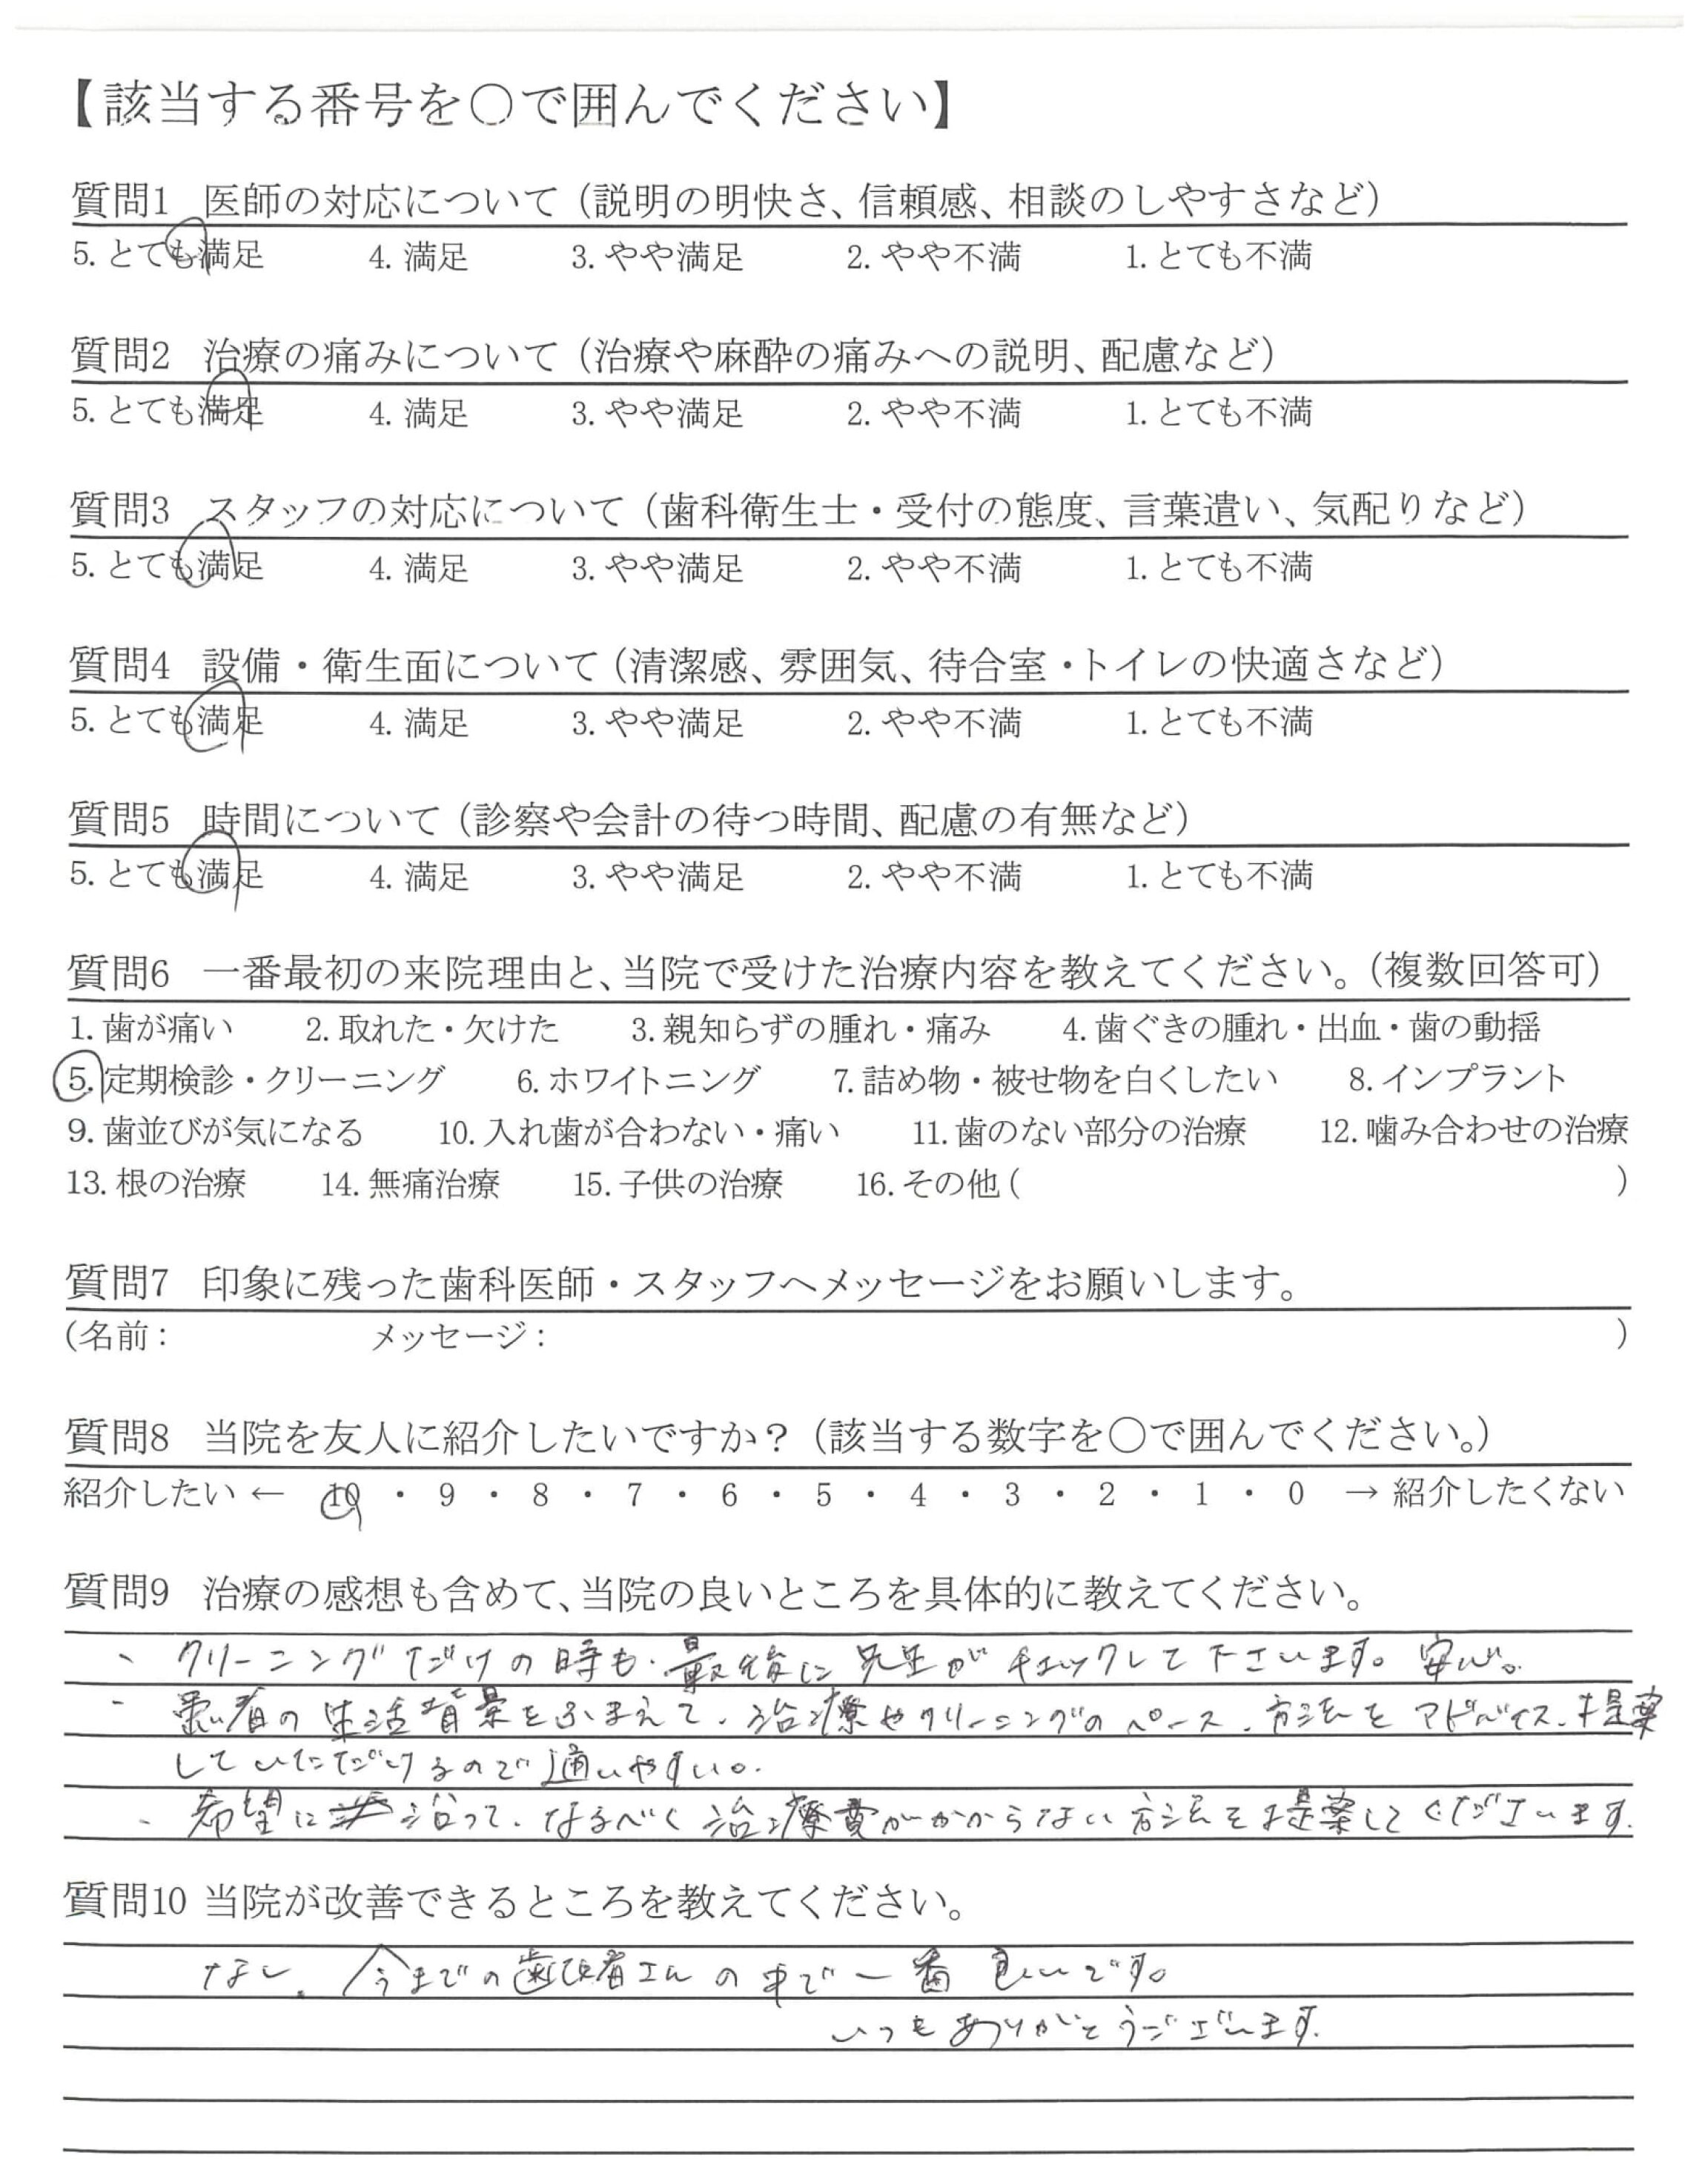 【該当する番号を○で囲んでください】
質問1 医師の対応について（説明の明快さ、信頼感、相談のしやすさなど）
5. とても満足 4. 満足 3. やや満足 2. やや不満 1. とても不満
質問2 治療の痛みについて（治療や麻酔の痛みへの説明、配慮など）
5. とても満足 4. 満足 3. やや満足 2. やや不満 1. とても不満
質問3 スタッフの対応について（歯科衛生士・受付の態度、言葉遣い、気配りなど）
5. とても満足 4. 満足 3. やや満足 2. やや不満 1. とても不満
質問4 設備・衛生面について（清潔感、雰囲気、待合室・トイレの快適さなど）
5. とても満足 4. 満足 3. やや満足 2. やや不満 1. とても不満
質問5 時間について（診察や会計の待つ時間、配慮の有無など）
5. とても満足 4. 満足 3. やや満足 2. やや不満 1. とても不満
質問6 一番最初の来院理由と、当院で受けた治療内容を教えてください。（複数回答可）
1. 歯が痛い 2. 取れた・欠けた 3. 親知らずの腫れ・痛み 4. 歯ぐきの腫れ・出血・歯の動揺
5. 定期検診・クリーニング 6. ホワイトニング 7. 詰め物・被せ物を白くしたい 8. インプラント
9. 歯並びが気になる 10. 入れ歯が合わない・痛い 11. 歯のない部分の治療 12. 噛み合わせの治療
13. 根の治療 14. 無痛治療 15. 子供の治療 16. その他 ( )
質問7 印象に残った歯科医師・スタッフへメッセージをお願いします。
（名前： メッセージ： ）
質問8 当院を友人に紹介したいですか？（該当する数字を○で囲んでください。）
紹介したい ← 10 ・ 9 ・ 8 ・ 7 ・ 6 ・ 5 ・ 4 ・ 3 ・ 2 ・ 1 ・ 0 → 紹介したくない
質問9 治療の感想も含めて、当院の良いところを具体的に教えてください。
、クリーニングだけの時も、最後に先生がチェックして下さいます。安心。
、患者の生活背景をふまえて、治療やクリーニングのペース、方法をアドバイス、提案
していただけるので通いやすい。
、希望に沿って、なるべく治療費がかからない方法を提案してくださいます。
質問10 当院が改善できるところを教えてください。
なし、今までの歯医者さんの中で一番良いです。
いつもありがとうございます。